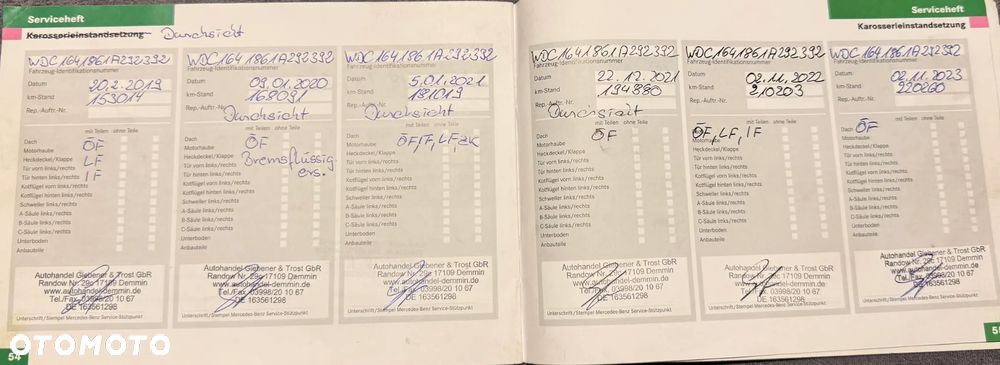 Serviceheft
Karosserieinstandsetzung
Durchsicht
WDC1641861A292392
Fahrzeug-Identifikationsnummer
Datum 20.2.2019
km-Stand 153014
Rep.-Auftr.-Nr.
mit Teilen ohne Teile
Dach
Motorhaube
Heckdeckel/Klappe
Tür vorn links/rechts
Tür hinten links/rechts
Kotflügel vorn links/rechts
Kotflügel hinten links/rechts
Schweller links/rechts
A-Säule links/rechts
B-Säule links/rechts
C-Säule links/rechts
Unterboden
Anbauteile
ÖF
LF
IF
Autohandel Giebener & Trost GbR
Randow Nr. 29c 17109 Demmin
www.autohandel-demmin.de
Tel./Fax 03998/20 10 67
DE 163561298
Unterschrift/Stempel Mercedes-Benz Service-Stützpunkt
WDC1641861A292392
Fahrzeug-Identifikationsnummer
Datum 09.01.2020
km-Stand 168091
Rep.-Auftr.-Nr.
Durchsicht
mit Teilen ohne Teile
Dach
Motorhaube
Heckdeckel/Klappe
Tür vorn links/rechts
Tür hinten links/rechts
Kotflügel vorn links/rechts
Kotflügel hinten links/rechts
Schweller links/rechts
A-Säule links/rechts
B-Säule links/rechts
C-Säule links/rechts
Unterboden
Anbauteile
ÖF
Bremsflüssig
ers.
Autohandel Giebener & Trost GbR
Randow Nr. 29c 17109 Demmin
www.autohandel-demmin.de
Tel./Fax 03998/20 10 67
DE 163561298
Unterschrift/Stempel Mercedes-Benz Service-Stützpunkt
WDC1641861A292392
Fahrzeug-Identifikationsnummer
Datum 5.01.2021
km-Stand 181019
Rep.-Auftr.-Nr.
Durchsicht
mit Teilen ohne Teile
Dach
Motorhaube
Heckdeckel/Klappe
Tür vorn links/rechts
Tür hinten links/rechts
Kotflügel vorn links/rechts
Kotflügel hinten links/rechts
Schweller links/rechts
A-Säule links/rechts
B-Säule links/rechts
C-Säule links/rechts
Unterboden
Anbauteile
ÖF, IF, LF
Autohandel Giebener & Trost GbR
Randow Nr. 29c 17109 Demmin
www.autohandel-demmin.de
Tel./Fax 03998/20 10 67
DE 163561298
Unterschrift/Stempel Mercedes-Benz Service-Stützpunkt
54
Serviceheft
Karosserieinstandsetzung
WDC1641861A292392
Fahrzeug-Identifikationsnummer
Datum 22.12.2021
km-Stand 194880
Rep.-Auftr.-Nr.
Durchsicht
mit Teilen ohne Teile
Dach
Motorhaube
Heckdeckel/Klappe
Tür vorn links/rechts
Tür hinten links/rechts
Kotflügel vorn links/rechts
Kotflügel hinten links/rechts
Schweller links/rechts
A-Säule links/rechts
B-Säule links/rechts
C-Säule links/rechts
Unterboden
Anbauteile
ÖF
Autohandel Giebener & Trost GbR
Randow Nr. 29c 17109 Demmin
www.autohandel-demmin.de
Tel./Fax 03998/20 10 67
DE 163561298
Unterschrift/Stempel Mercedes-Benz Service-Stützpunkt
WDC1641861A292392
Fahrzeug-Identifikationsnummer
Datum 02.11.2022
km-Stand 210203
Rep.-Auftr.-Nr.
mit Teilen ohne Teile
Dach
Motorhaube
Heckdeckel/Klappe
Tür vorn links/rechts
Tür hinten links/rechts
Kotflügel vorn links/rechts
Kotflügel hinten links/rechts
Schweller links/rechts
A-Säule links/rechts
B-Säule links/rechts
C-Säule links/rechts
Unterboden
Anbauteile
ÖF, LF, IF
Autohandel Giebener & Trost GbR
Randow Nr. 29c 17109 Demmin
www.autohandel-demmin.de
Tel./Fax 03998/20 10 67
DE 163561298
Unterschrift/Stempel Mercedes-Benz Service-Stützpunkt
WDC1641861A292392
Fahrzeug-Identifikationsnummer
Datum 02.11.2023
km-Stand 220260
Rep.-Auftr.-Nr.
mit Teilen ohne Teile
Dach
Motorhaube
Heckdeckel/Klappe
Tür vorn links/rechts
Tür hinten links/rechts
Kotflügel vorn links/rechts
Kotflügel hinten links/rechts
Schweller links/rechts
A-Säule links/rechts
B-Säule links/rechts
C-Säule links/rechts
Unterboden
Anbauteile
ÖF
Autohandel Giebener & Trost GbR
Randow Nr. 29c 17109 Demmin
www.autohandel-demmin.de
Tel./Fax 03998/20 10 67
DE 163561298
Unterschrift/Stempel Mercedes-Benz Service-Stützpunkt
OTOMOTO